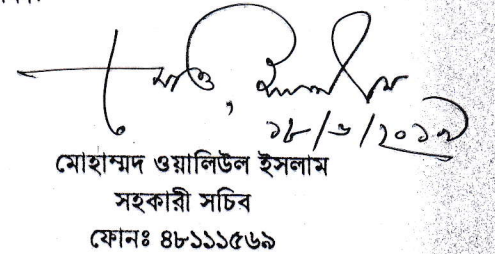 ১৮/৬/২০১৭
মোহাম্মদ ওয়ালিউল ইসলাম
সহকারী সচিব
ফোনঃ ৪৮১১১৫৬৯